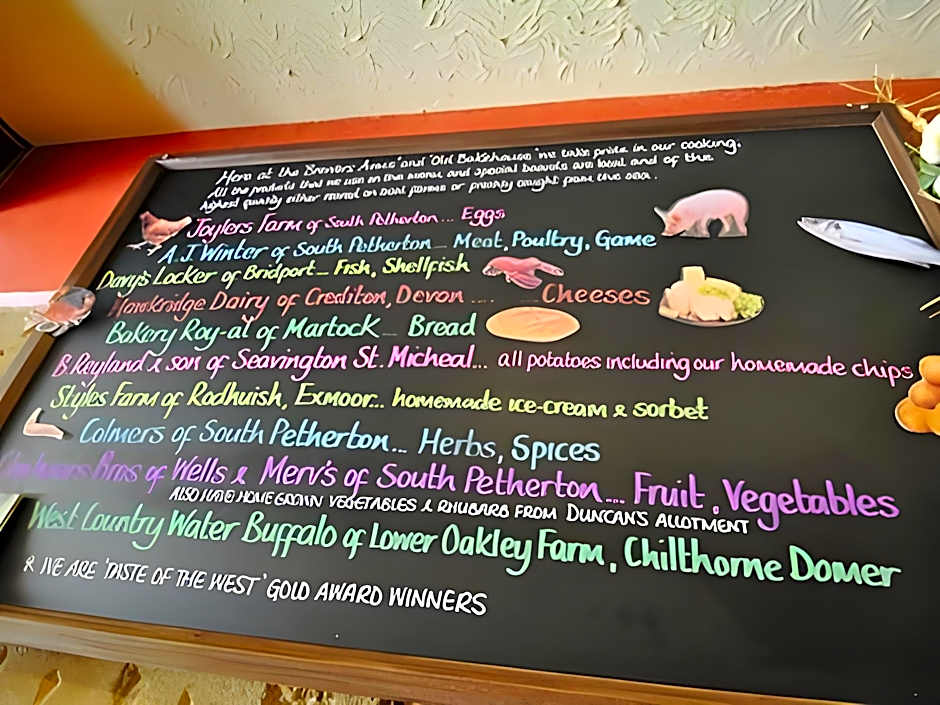 Here at the Brewers Arms' and 'Old Bakehouse' we take pride in our cooking.
All the products that we use on the menu and special boards are local and of the
highest quality either reared on local farms or freshly caught from the sea.
Joylers Farm of South Petherton... Eggs
A.J. Winter of South Petherton... Meat, Poultry, Game
Davy's Locker of Bridport... Fish, Shellfish
Hawkridge Dairy of Crediton, Devon .... .... Cheeses
Bakery Roy-al of Martock ... Bread
B. Reyland & son of Seavington St. Micheal... all potatoes including our homemade chips
Styles Farm of Rodhuish, Exmoor... homemade ice-cream & sorbet
Colmers of South Petherton... Herbs, Spices
Bros of Wells & Merv's of South Petherton.... Fruit, Vegetables
ALSO HOME GROWN VEGETABLES & RHUBARB FROM DUNCAN'S ALLOTMENT
West Country Water Buffalo of Lower Oakley Farm, Chilthorne Domer
& WE ARE 'TASTE OF THE WEST' GOLD AWARD WINNERS